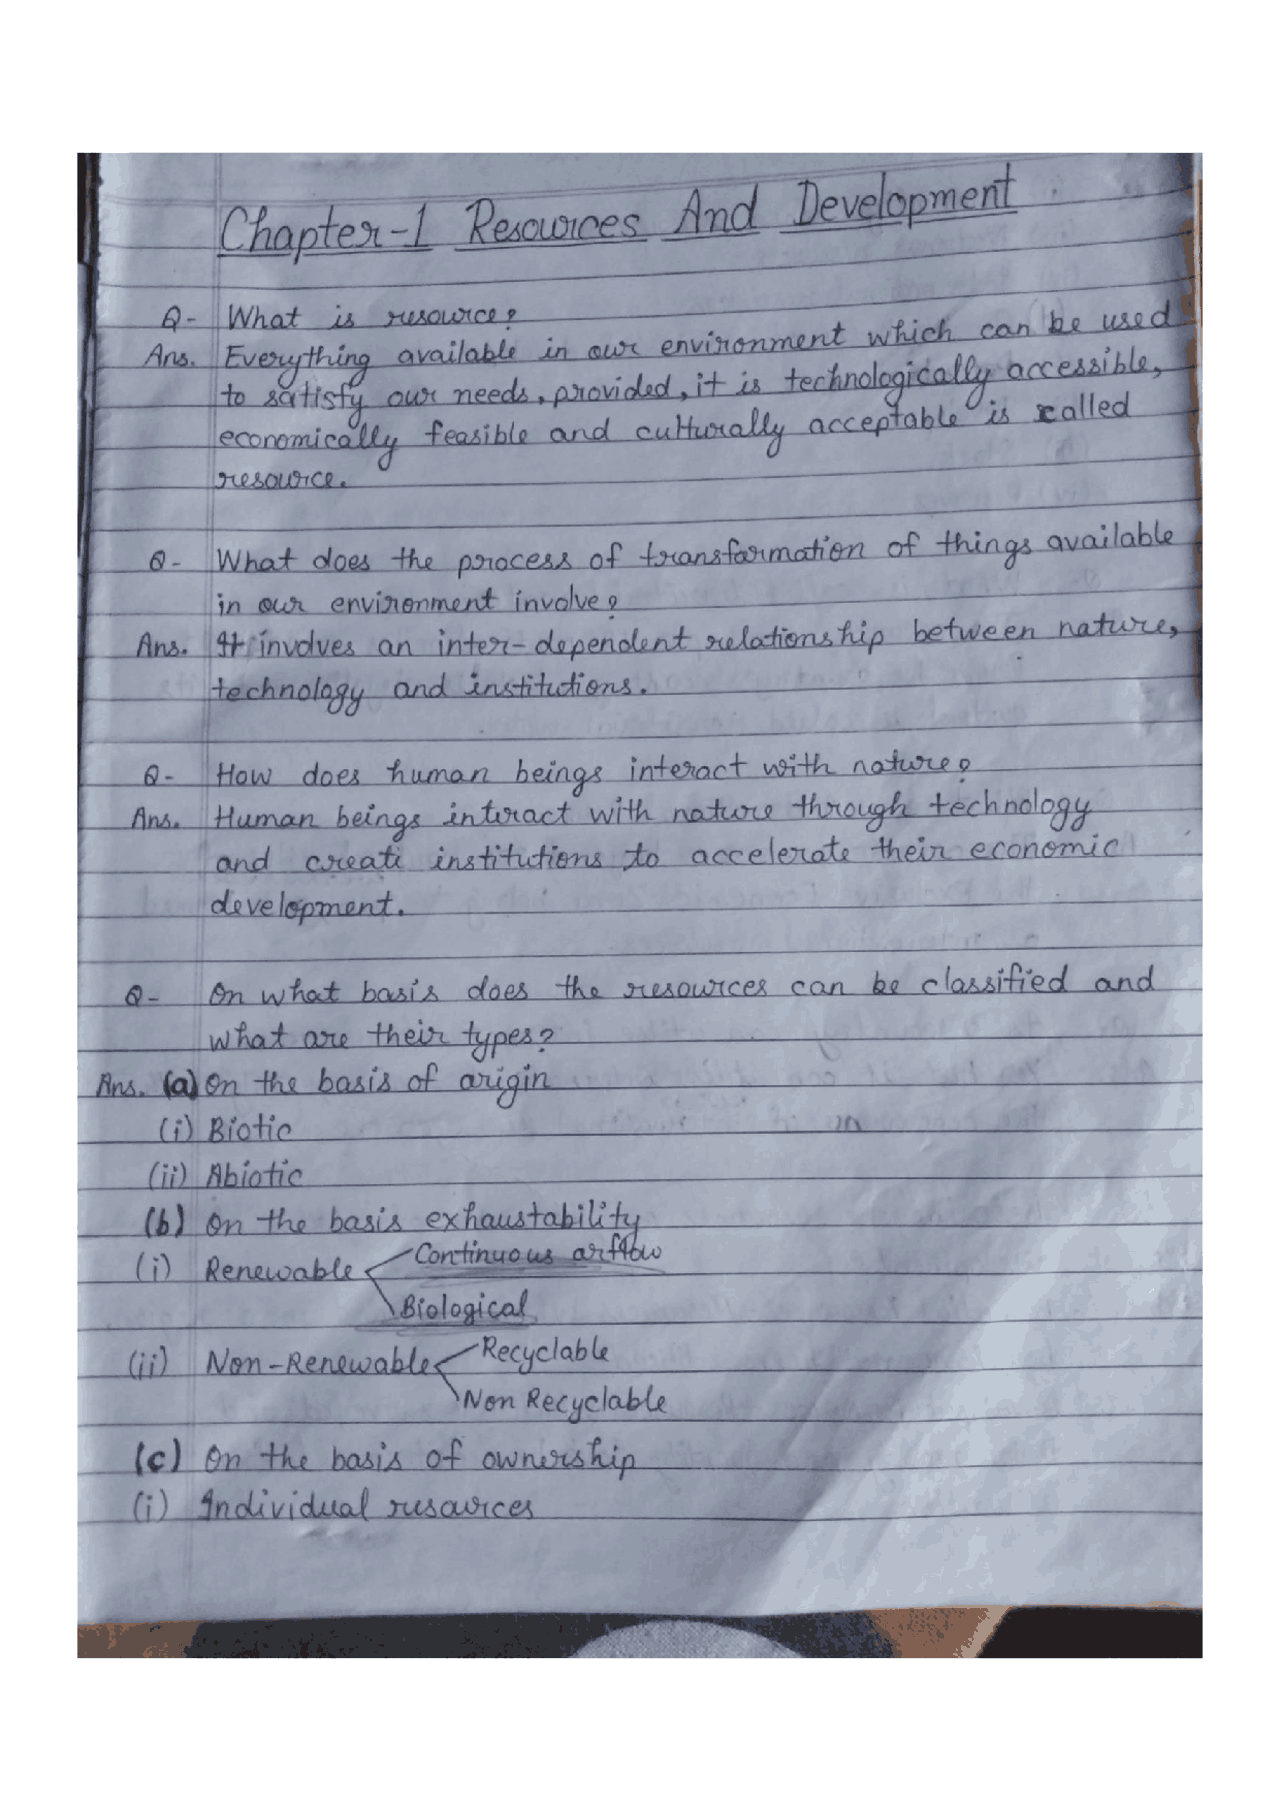 Chapter-1 Resources And Development
Q- What is resource?
Ans. Everything available in our environment which can be used
to satisfy our needs, provided, it is technologically accessible,
economically feasible and culturally acceptable is called
resource.
Q- What does the process of transformation of things available
in our environment involve?
Ans. It involves an inter-dependent relationship between nature,
technology and institutions.
Q- How does human beings interact with nature?
Ans. Human beings interact with nature through technology
and create institutions to accelerate their economic
development.
Q- On what basis does the resources can be classified and
what are their types?
Ans. (a) On the basis of origin
(i) Biotic
(ii) Abiotic
(b) On the basis exhaustability
(i) Renewable Continuous or flow
Biological
(ii) Non-Renewable Recyclable
Non Recyclable
(c) On the basis of ownership
(i) Individual resources